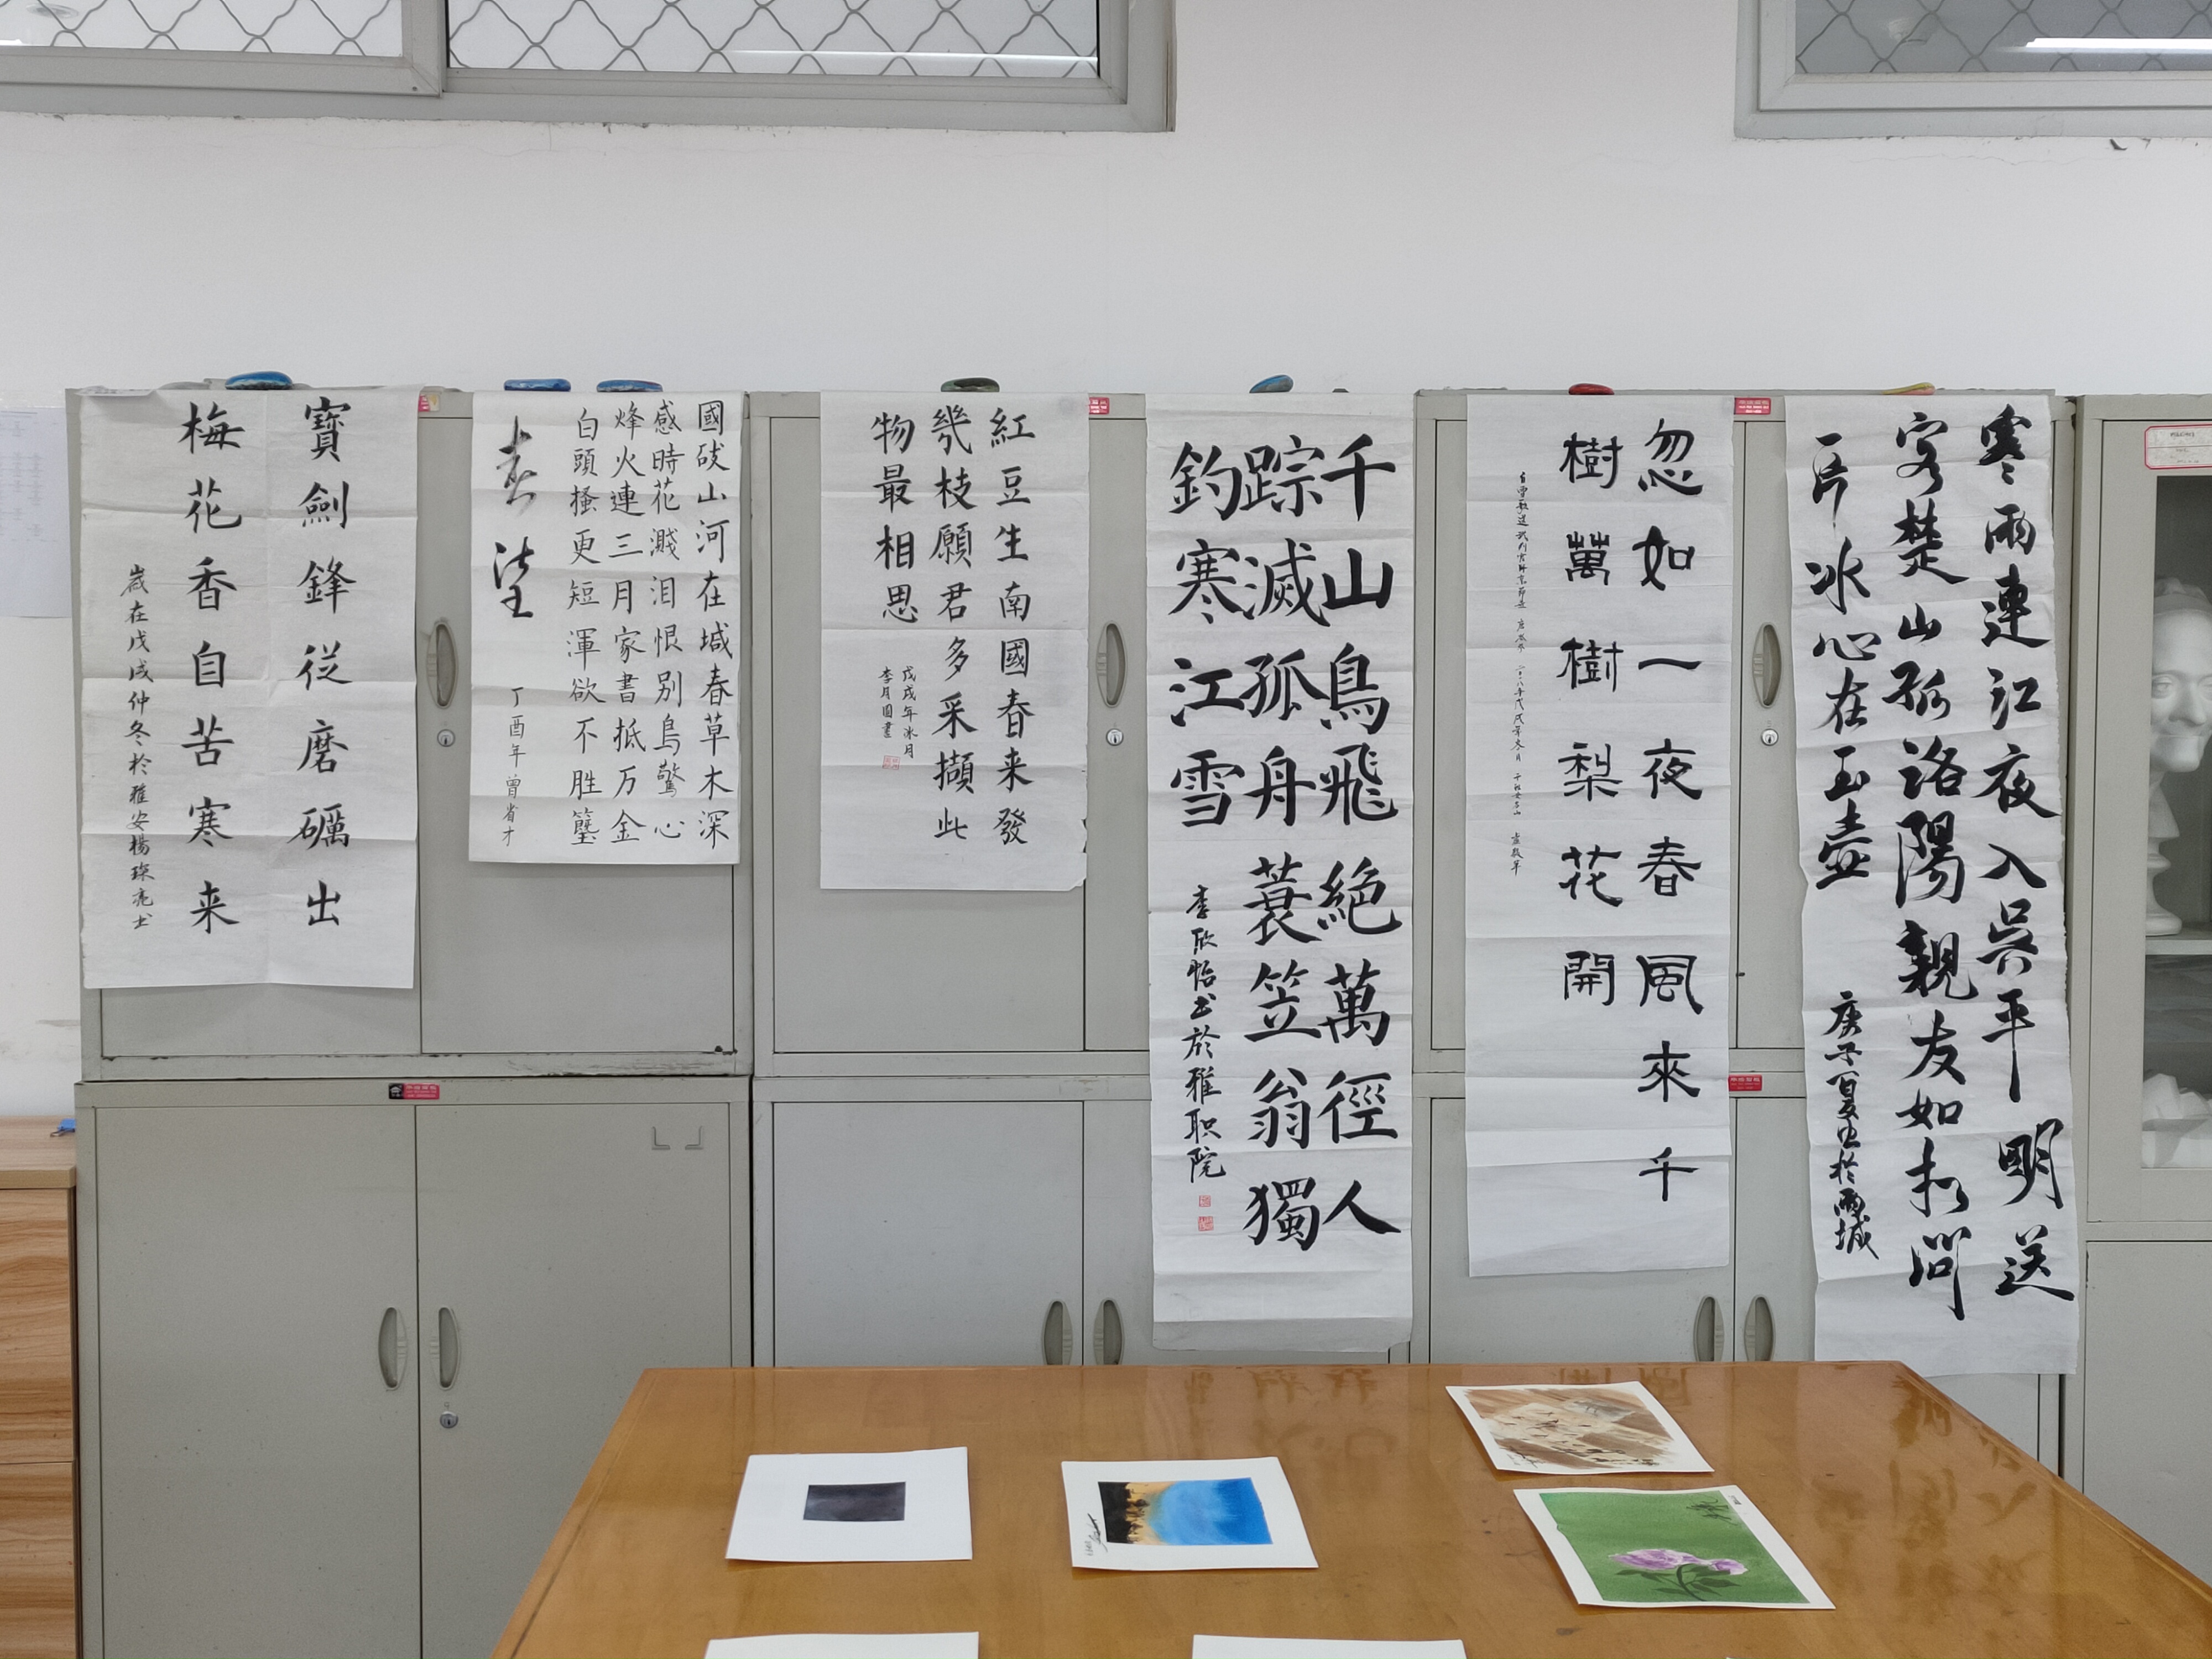 寶劍鋒從磨礪出
梅花香自苦寒来
嵗在戊戌仲冬於雅安楊琛亮书
國破山河在城春草木深
感時花濺泪恨别鳥驚心
烽火連三月家書抵万金
白頭搔更短渾欲不胜簪
春望
丁酉年曾省才
紅豆生南國春来發
幾枝願君多采擷此
物最相思
戊戌年冰月
李月圆書
千山鳥飛絶萬徑人
踪滅孤舟蓑笠翁獨
釣寒江雪
李欣怡书於雅职院
忽如一夜春風來千
樹萬樹梨花開
寒雨連江夜入吳平明送
客楚山孤洛陽親友如相問
一片冰心在玉壺
庚子夏书於雨城